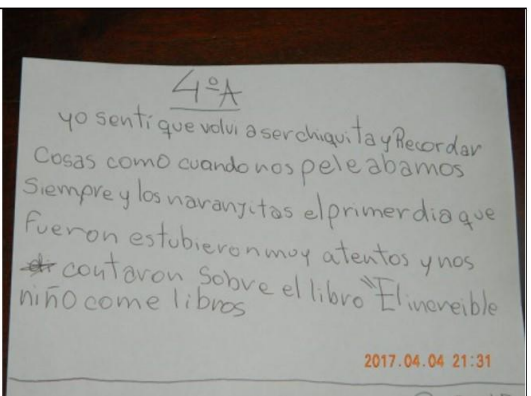 4ºA
yo sentí que volvi a ser chiquita y Recordar
Cosas como cuando nos peleabamos
Siempre y los naranjitas el primer dia que
fueron estubieron muy atentos y nos
contaron sobre el libro "El increible
niño come libros
2017.04.04 21:31